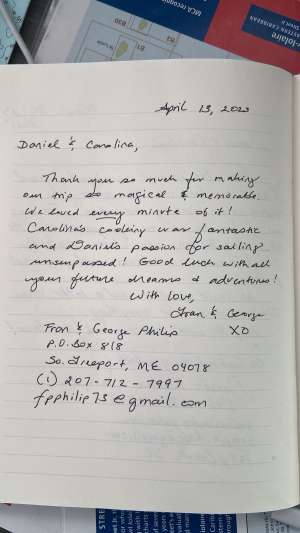 MCA recognised
EASTERN CARIBBEAN
B30
B1
April 13, 2023
Daniel & Carolina,
Thank you so much for making
our trip so magical & memorable.
We loved every minute of it!
Carolina's cooking was fantastic
and Daniel's passion for sailing
unsurpassed! Good luck with all
your future dreams & adventures!
With love,
Fran & George
XO
Fran & George Philip
P.O. Box 818
So. Freeport, ME 04078
(1) 207-712-7997
fpphilip73@gmail.com